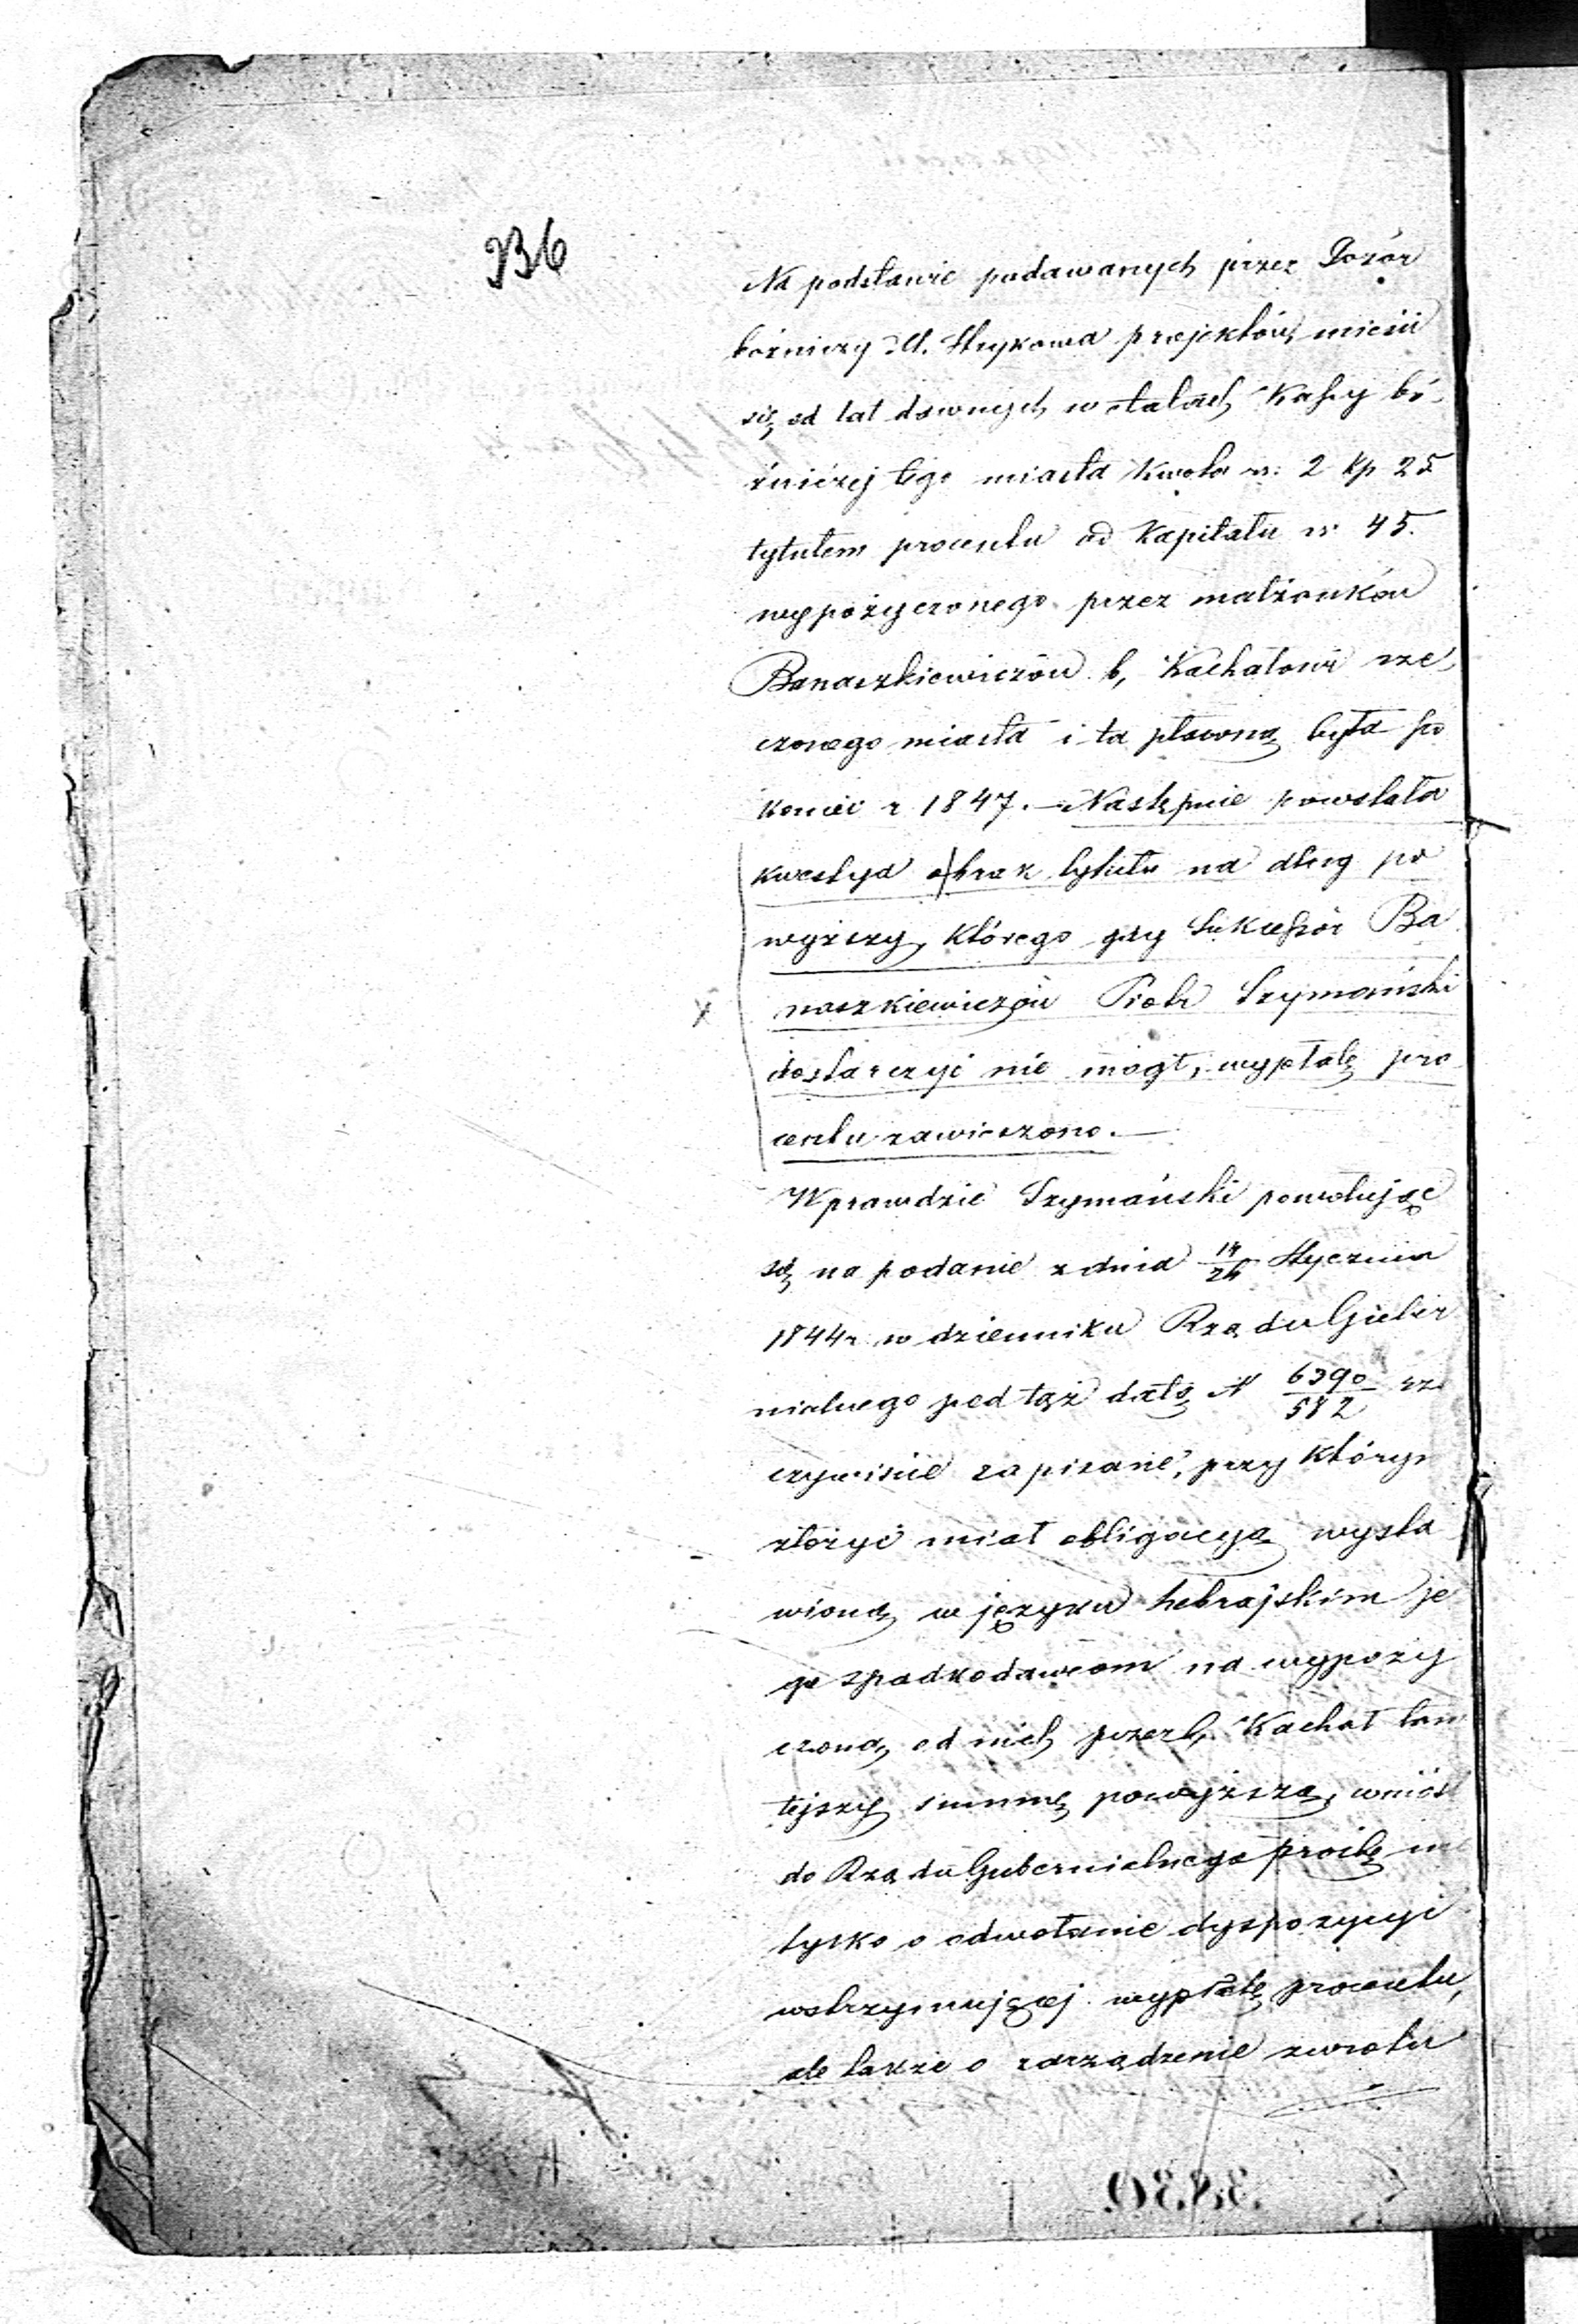 336
Na podstawie podawanych przez Dozór
bożniczy M. Strykowa projektów, mieści
się od lat dawnych w etatach Kassy bó-
źniczej tego miasta kwota rs: 2 kp 25
tytułem procentu od Kapitału rs 45.
wypożyczonego przez małżonków
Banaszkiewiczów b, Kachałowi rze-
czonego miasta i ta płaconą była po
koniec r 1847. — Następnie powstała
kwestya o brak tytułu na dług po
wyższy, którego gdy Sukcessor Ba
naszkiewiczów Piotr Szymański
dostarczyć nie mógł, wypłatę pro
centu zawieszono. —
Wprawdzie Szymański powołując
się na podanie z dnia 14/26 Stycznia
1844 r w dzienniku Rządu Guber
nialnego pod tąż datą N 6390/582 rze
czywiście zapisane, przy którym
złożyć miał obligacyą wysta
wioną w języku hebrajskim je
go spadkodawcom na wypoży
czoną od nich przez b, Kachał tam
tejszy summę powyższą, wniósł
do Rządu Gubernialnego prośbę nie
tylko o odwołanie dyspozycyi
wstrzymującej wypłatę procentu,
ale także o zarządzenie zwrotu
3830